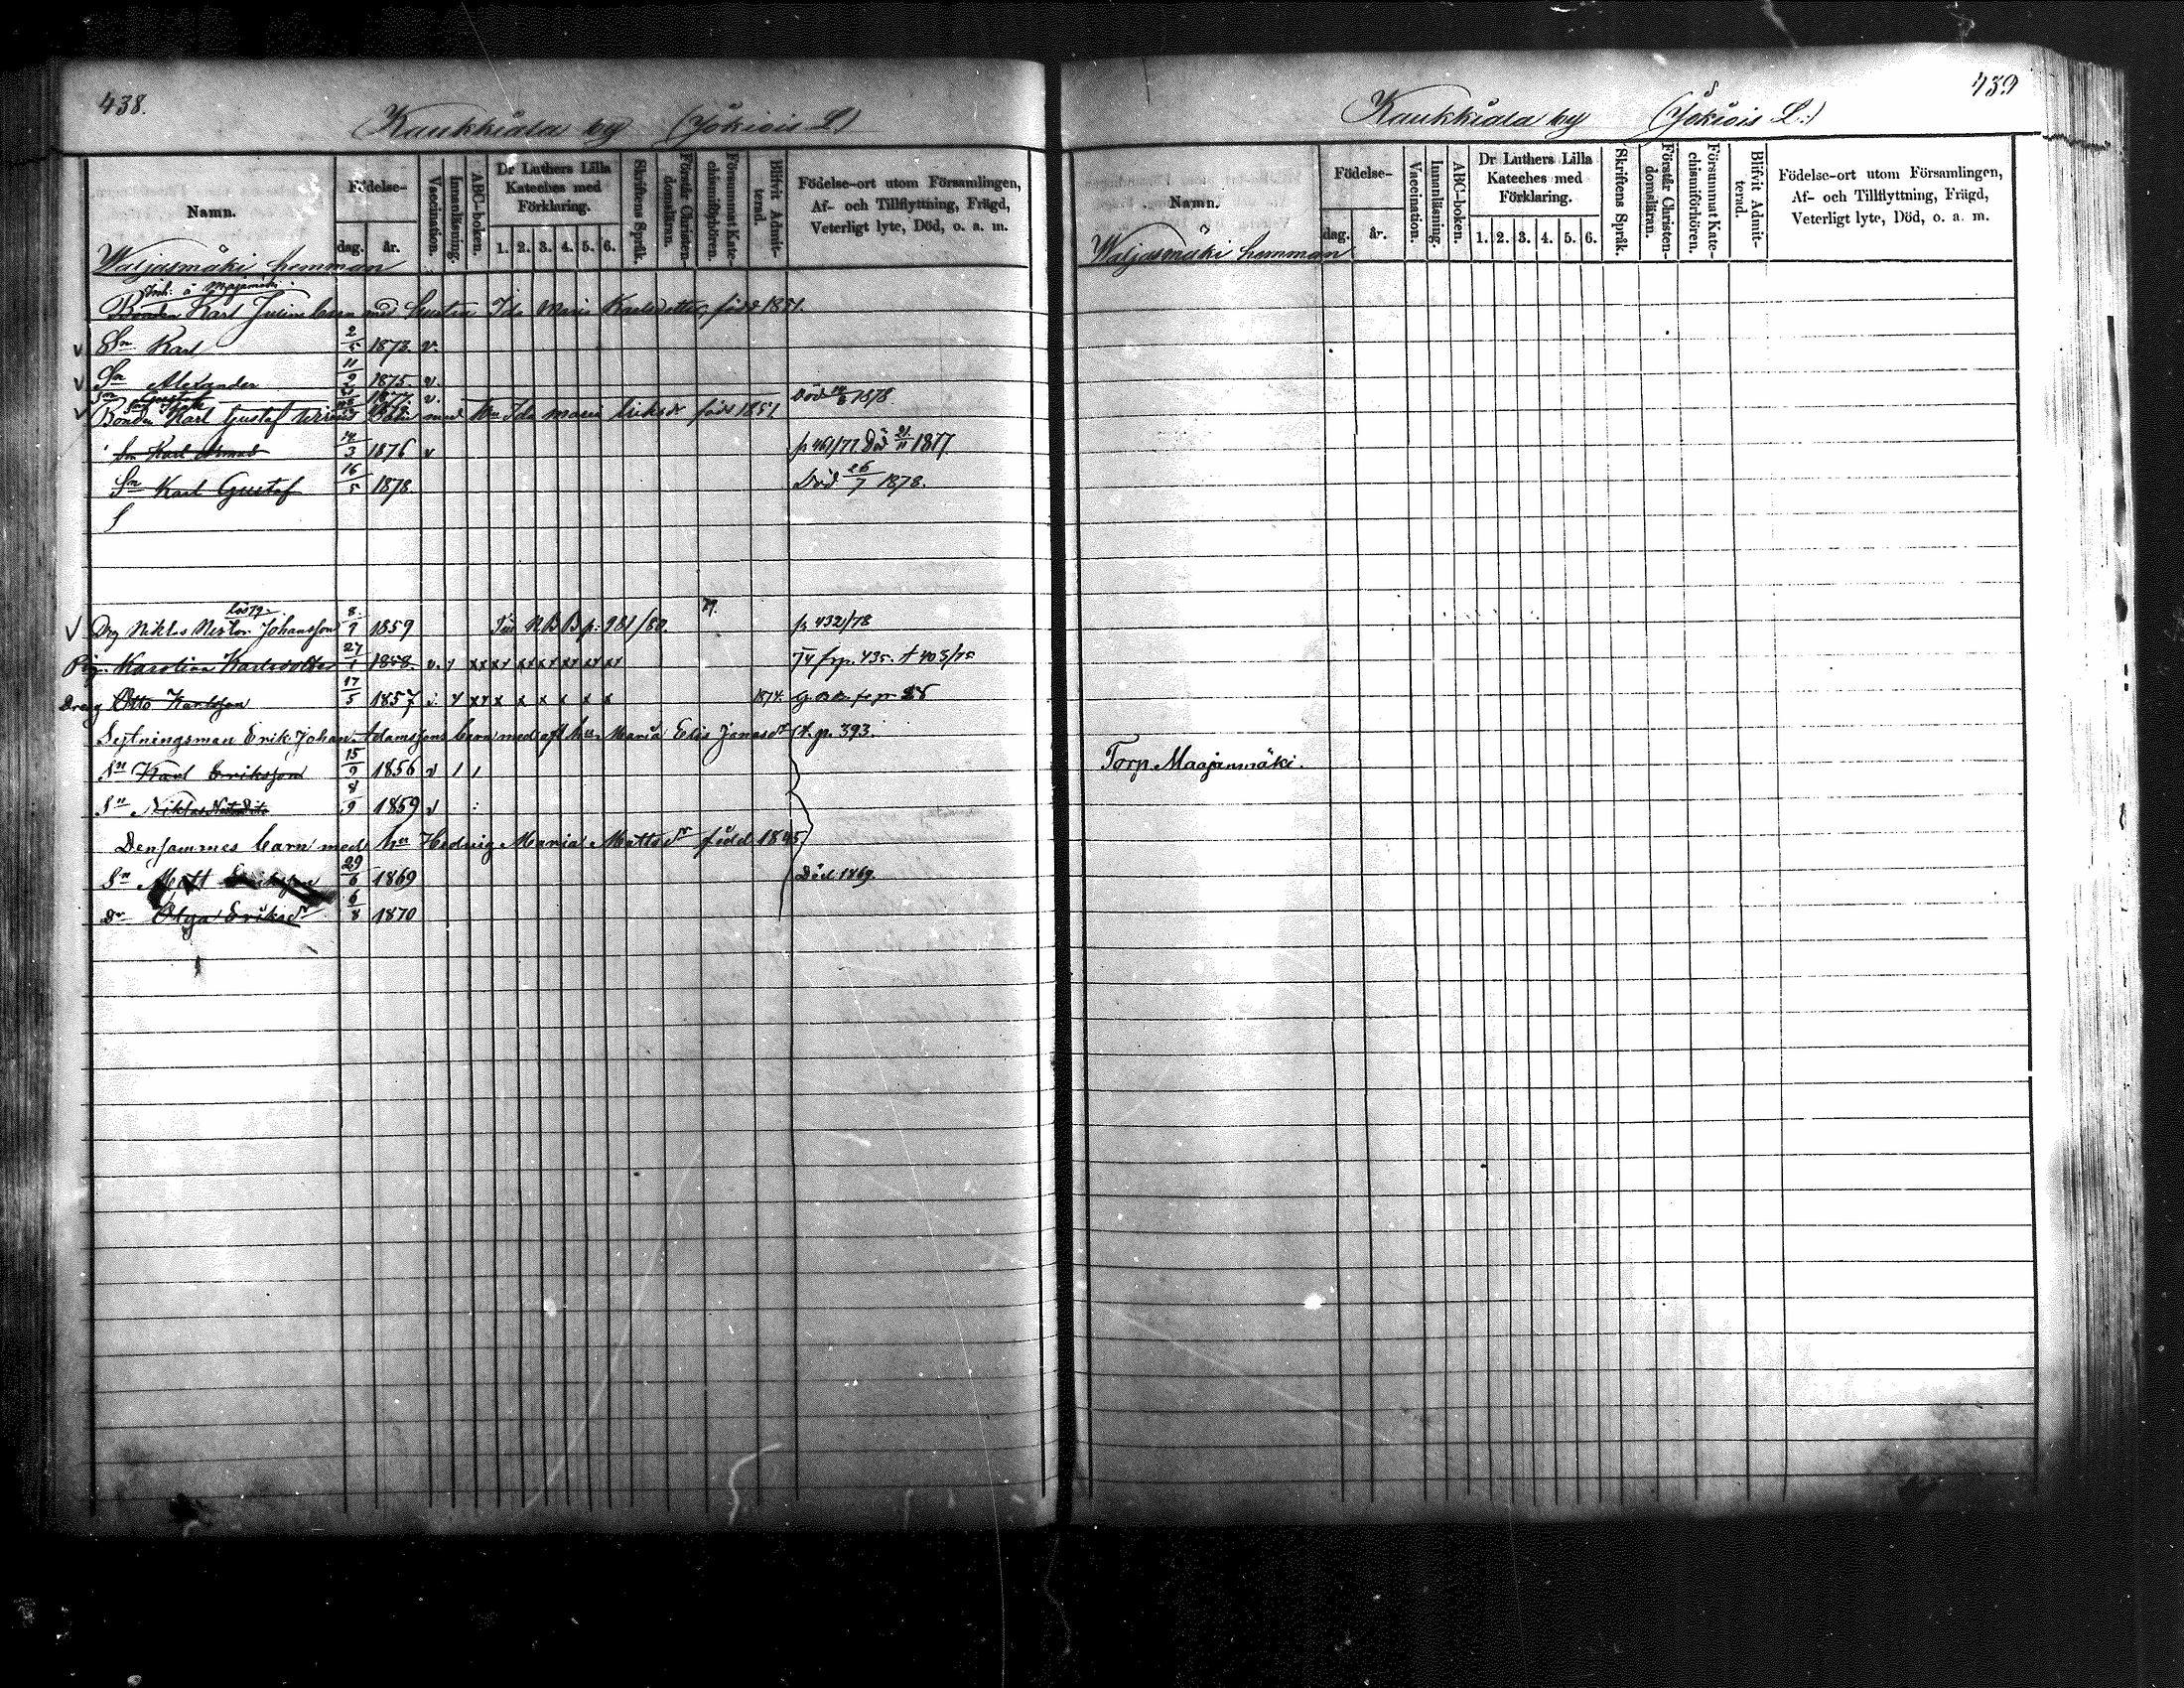 438.
Kaukkiala by (Jokiois L)
Namn.
Födelse-
dag. år.
Vaccination.
Innanläsning.
ABC-boken.
Dr Luthers Lilla Kateches med Förklaring.
1. 2. 3. 4. 5. 6.
Skriftens Språk.
Förstår Christendomsläran.
Försummat Katechismiförhören.
Blifvit Admitterad.
Födelse-ort utom Församlingen,
Af- och Tillflyttning, Frägd,
Veterligt lyte, Död, o. a. m.
Waljasmäki hemman
Bonden Karl barn med hustru Ida Maria Karlsdotter, född 1851.
v Sn Karl 2/5 1873. v.
v Sn Alexander 11/2 1875. v.
Sn Gustaf 1877 v. Död 1878
v Bonden Karl Gustaf med hu Ida Maria Eriksdr född 1851
Sn Karl 14/3 1876 v p 461/77 Död 21/11 1877
Sn Karl Gustaf 16/5 1878. Död 26/7 1878.
v Drg Niklas Nestor Johansson 8/9 1859 N B B p. 981/80. p. 432/78
Pig. Karolina Karlsdotter 27/1 1858 v. 435. 403/75
Dreng Otto Karlsson 17/5 1857 1874.
Sytningsman Erik Johan Adamssons barn med afl hu Maria Elis Jonasdr (t. p. 393.
Sn Karl Eriksson 15/9 1856 v 1 1
Sn Niklas 8/9 1859 v
Densammes barn med hu Hedvig Maria Mattsdr född 1845
Sn Matt Eriksson 29/6 1869 Död 1869.
Dr Olga Eriksdr 6/8 1870
439
Kaukkiala by (Jokiois L:)
Namn.
Födelse-
dag. år.
Vaccination.
Innanläsning.
ABC-boken.
Dr Luthers Lilla Kateches med Förklaring.
1. 2. 3. 4. 5. 6.
Skriftens Språk.
Förstår Christendomsläran.
Försummat Katechismiförhören.
Blifvit Admitterad.
Födelse-ort utom Församlingen,
Af- och Tillflyttning, Frägd,
Veterligt lyte, Död, o. a. m.
Waljasmäki hemman
Torp. Maajanmäki.